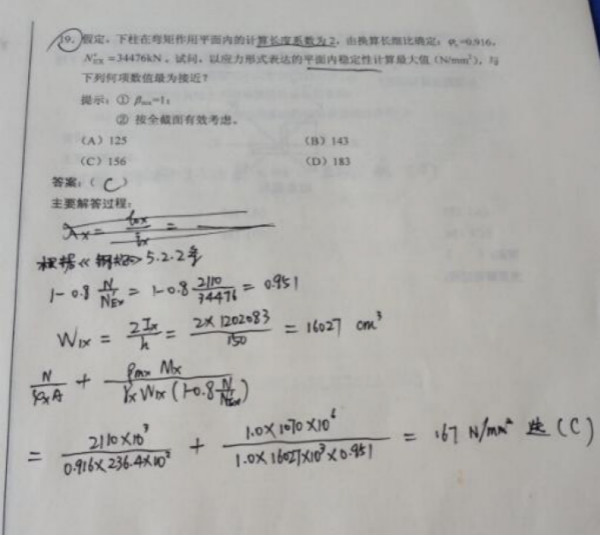 19. 假定，下柱在弯矩作用平面内的计算长度系数为2，由换算长细比确定：φx=0.916，
N'EX=34476kN。试问，以应力形式表达的平面内稳定性计算最大值（N/mm²），与
下列何项数值最为接近？
提示：① βmx=1；
② 按全截面有效考虑。
（A）125 （B）143
（C）156 （D）183
答案：（ C ）
主要解答过程：
λx = lox/ix =
根据《钢规》5.2.2条
1-0.8 N/N'Ex = 1-0.8 2110/34476 = 0.951
W1x = 2Ix/h = 2×1202083/150 = 16027 cm³
N/φxA + βmx Mx/γx W1x (1-0.8 N/N'Ex)
= 2110×10³/0.916×236.4×10² + 1.0×1070×10⁶/1.0×16027×10³×0.951 = 167 N/mm² 选（C）